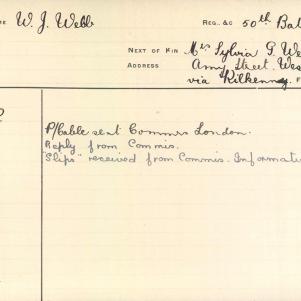 W. J. Webb
REG. &C 50th Bat
NEXT OF KIN Mrs Sylvia G. We
ADDRESS Amy Street. Wes
via Kilkenny
P/Cable sent Commrs London.
Reply from Commis.
"Slips" received from Commis. Informati